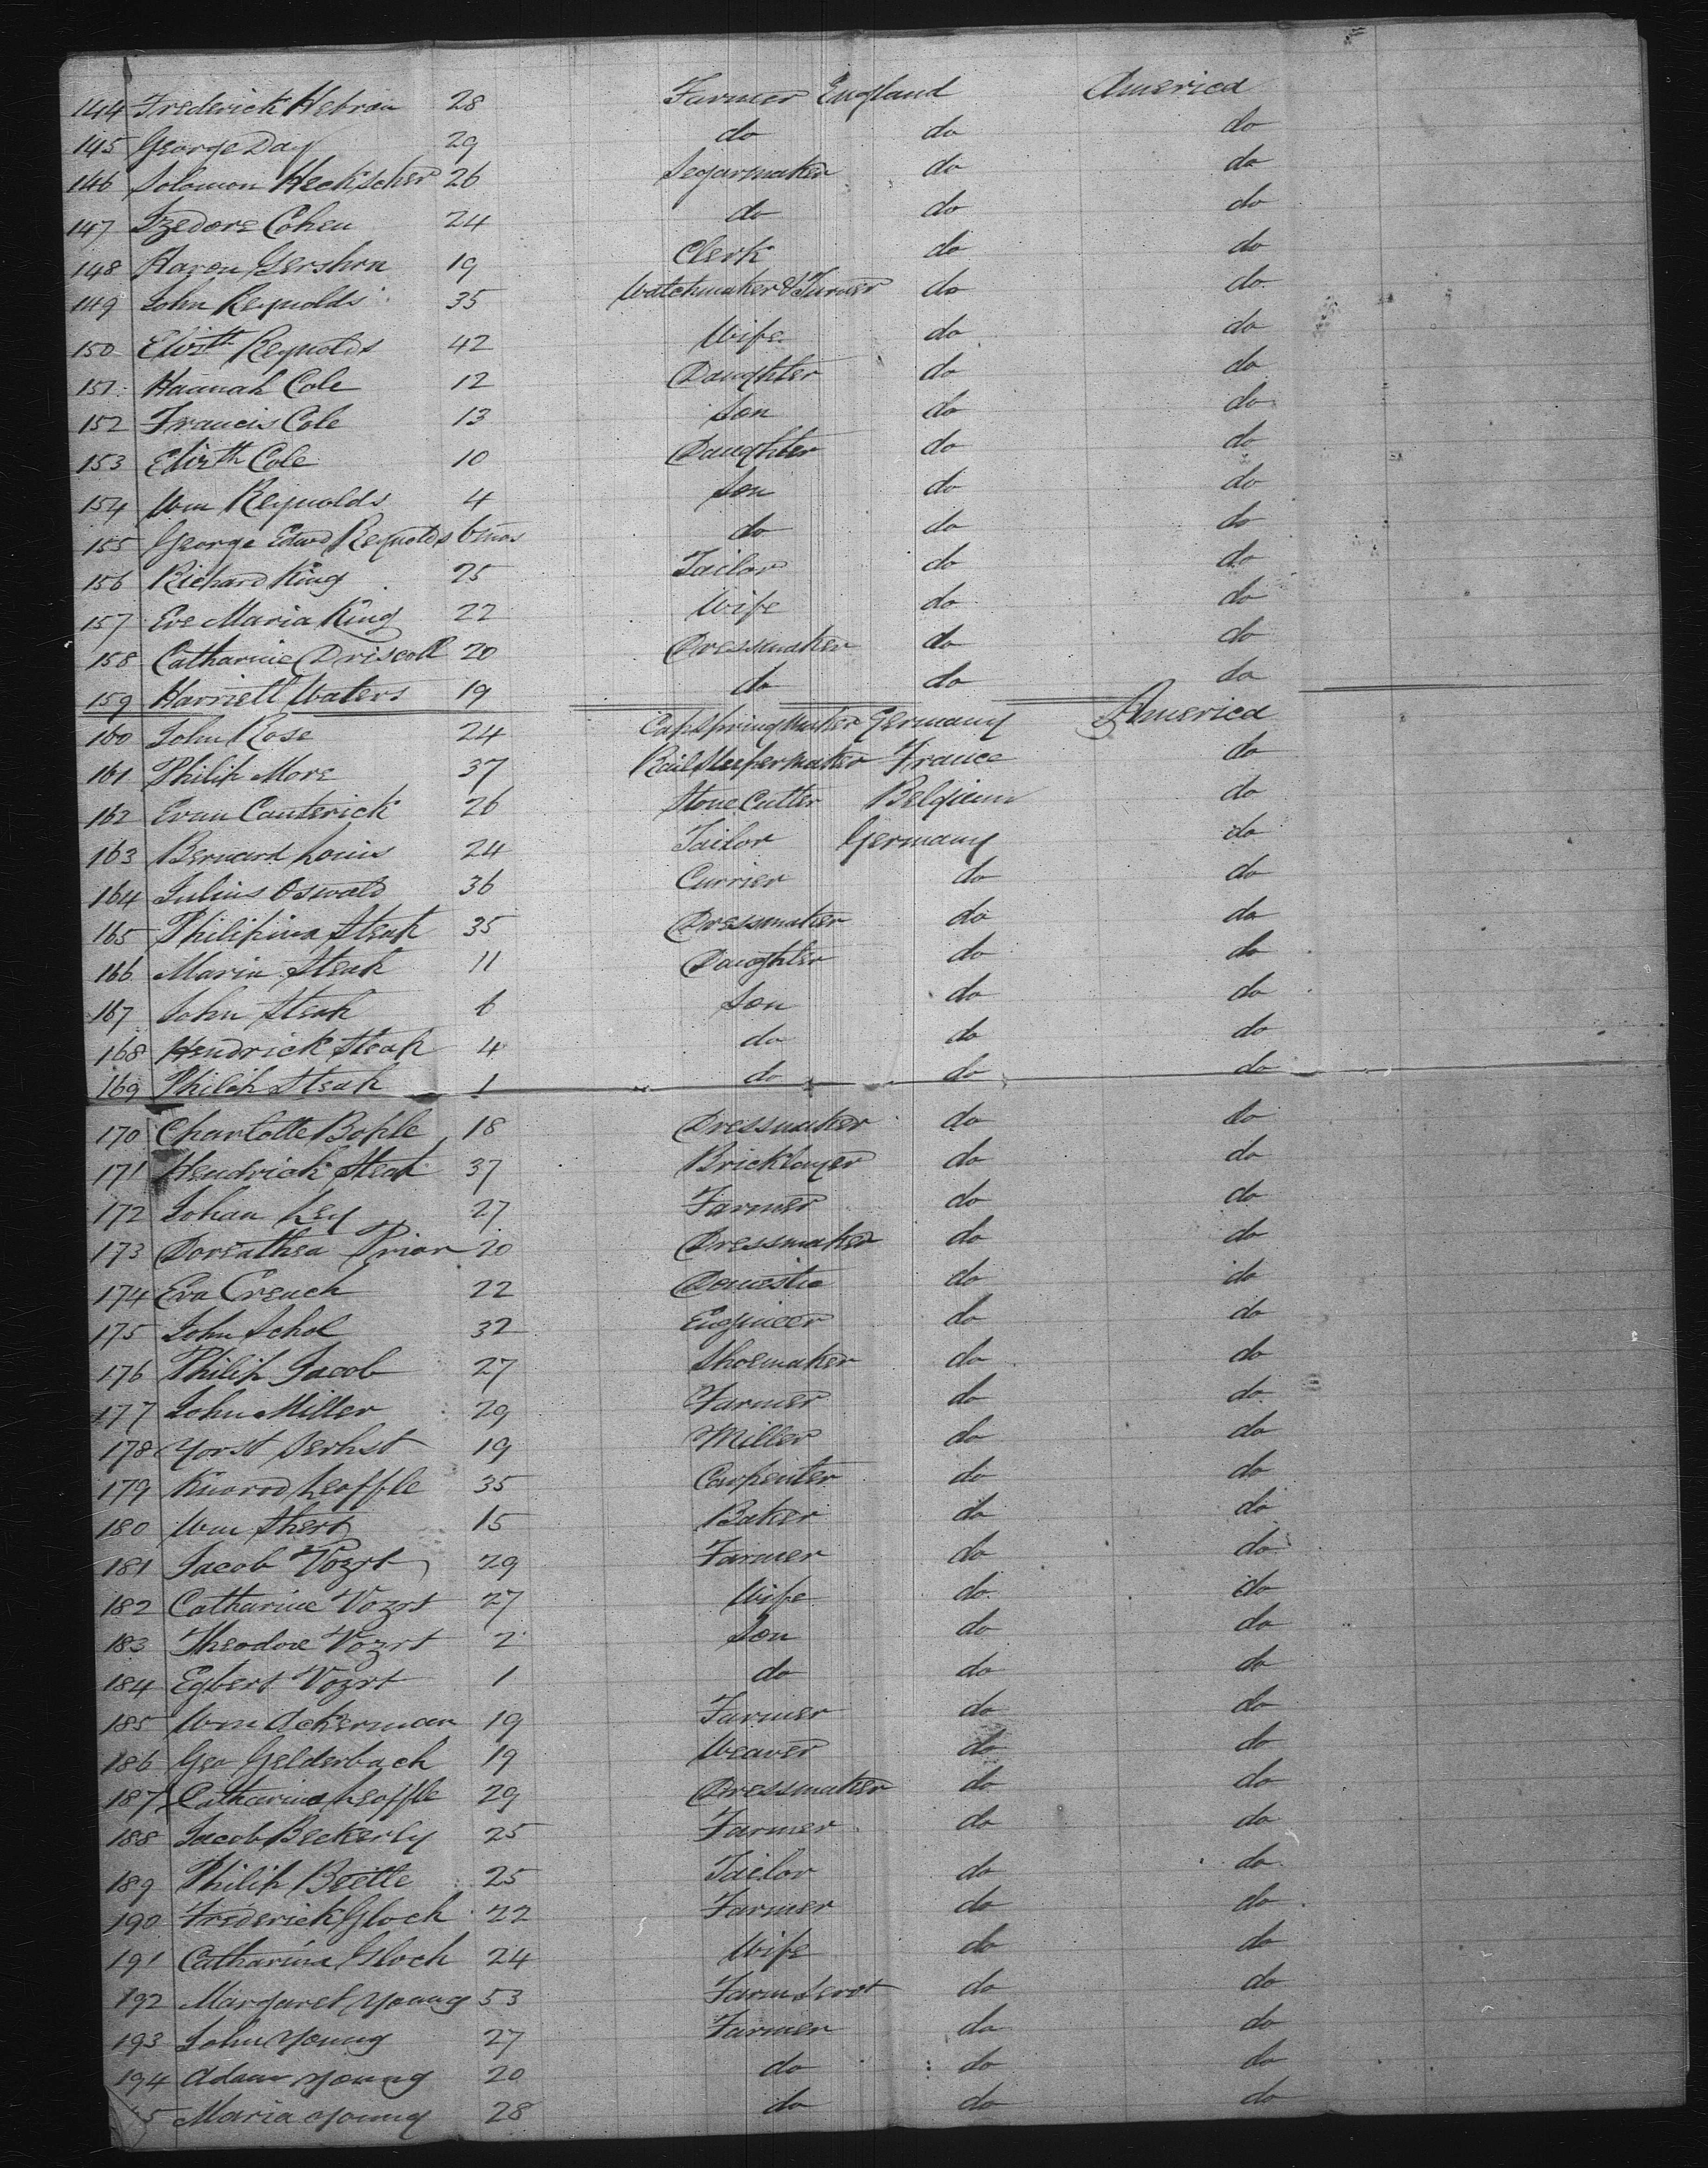 144 Frederick Hebron 28 Farmer England America
145 George Day 29 do do do
146 Solomon Heckscher 26 Segarmaker do do
147 Izedore Cohen 24 do do do
148 Aaron Gershon 19 Clerk do do
149 John Reynolds 35 Watchmaker & Turner do do
150 Elizth Reynolds 42 Wife do do
151 Hannah Cole 12 Daughter do do
152 Francis Cole 13 Son do do
153 Elizth Cole 10 Daughter do do
154 Wm Reynolds 4 Son do do
155 George Edwd Reynolds 6 mos do do do
156 Richard King 25 Tailor do do
157 Eve Maria King 22 Wife do do
158 Catharine Driscoll 20 Dressmaker do do
159 Harriett Waters 19 do do do
160 John Rose 24 Capspring Maker Germany America
161 Philip More 37 Rail Sleeper Maker France do
162 Evan Canterick 26 Stone Cutter Belgium do
163 Bernard Louis 24 Tailor Germany do
164 Julius Oswald 36 Currier do do
165 Philipina Steak 35 Dressmaker do do
166 Maria Steak 11 Daughter do do
167 John Steak 6 Son do do
168 Hendrick Steak 4 do do do
169 Philip Steak 1 do do do
170 Charlotte Bohle 18 Dressmaker do do
171 Hendrick Steak 37 Bricklayer do do
172 Johan Ley 27 Farmer do do
173 Doreathea Prior 20 Dressmaker do do
174 Eva Creuch 22 Domestic do do
175 John Schol 32 Engineer do do
176 Philip Jacob 27 Shoemaker do do
177 John Miller 29 Farmer do do
178 Yorst 19 Miller do do
179 Leoffle 35 Carpenter do do
180 Wm Shert 15 Baker do do
181 Jacob Vozrt 29 Farmer do do
182 Catharine Vozrt 27 Wife do do
183 Theodore Vozrt 2 Son do do
184 Egbert Vozrt 1 do do do
185 Wm Ackerman 19 Farmer do do
186 Geo Gelderbach 19 Weaver do do
187 Catharina Leoffle 29 Dressmaker do do
188 Jacob Beckerly 25 Farmer do do
189 Philip Beitle 25 Tailor do do
190 Frederick Gloch 22 Farmer do do
191 Catharina Gloch 24 Wife do do
192 Margaret Young 53 Farm Servt do do
193 John Young 27 Farmer do do
194 Adam Young 20 do do do
5 Maria Young 28 do do do